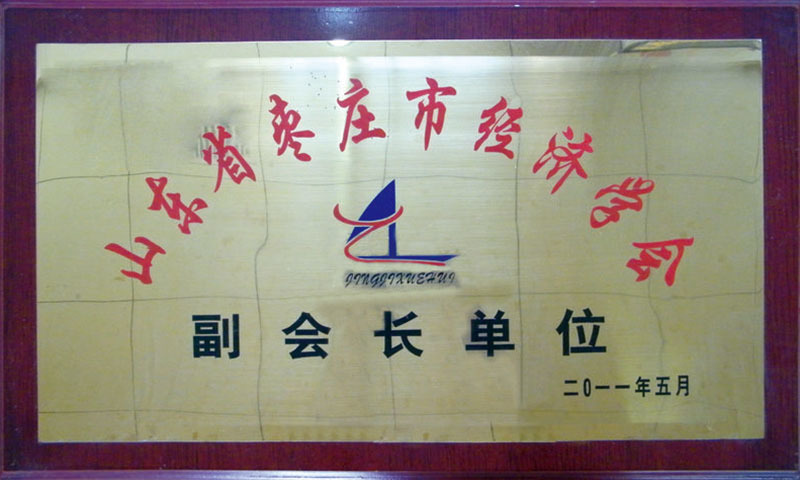 山东省枣庄市经济学会
JINGJIXUEHUI
副会长单位
二0一一年五月